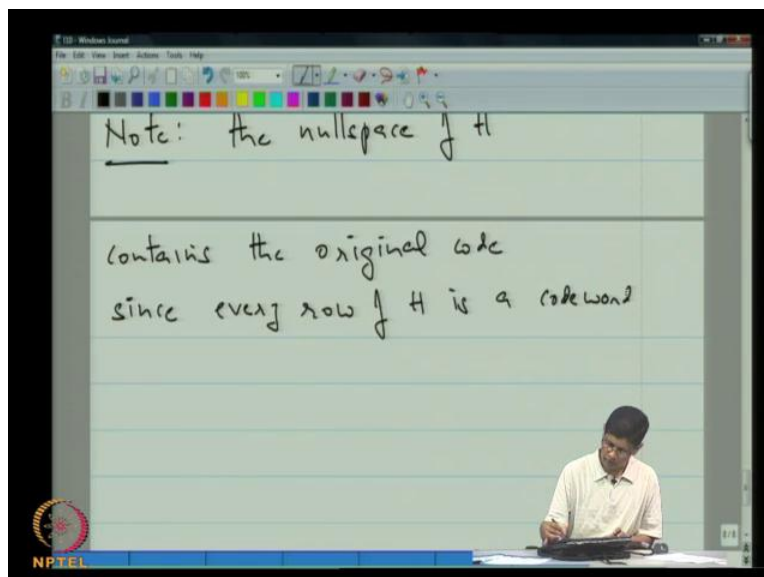 L10 - Windows Journal
File Edit View Insert Actions Tools Help
100%
B I
Note: the nullspace of H
contains the original code
since every row of H is a codeword
8/8
NPTEL